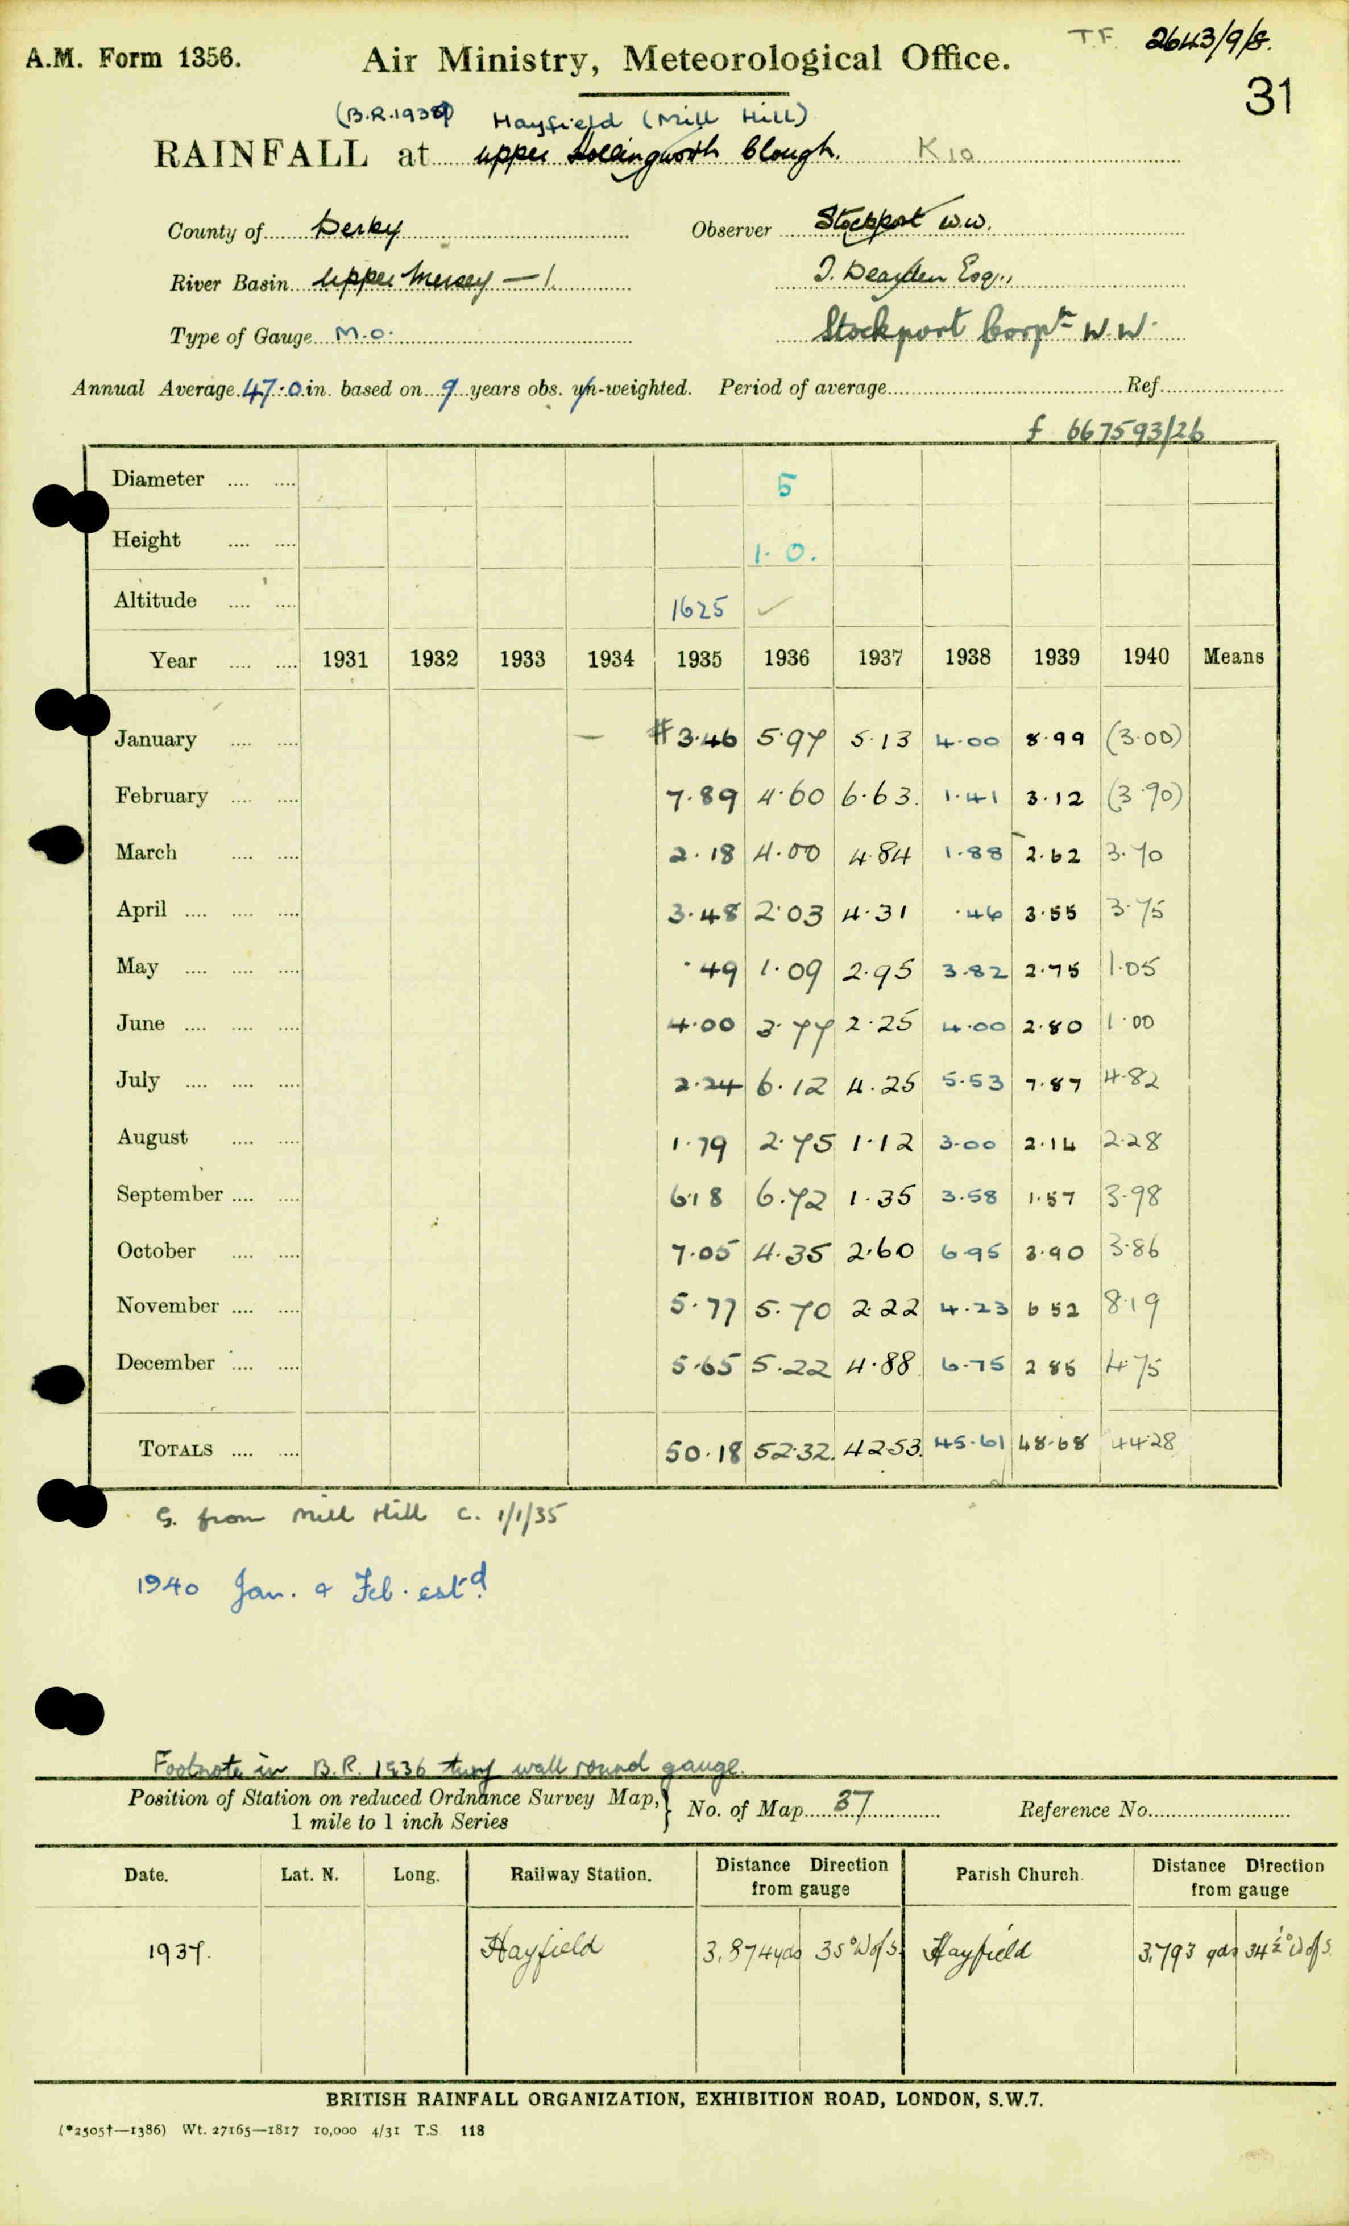 A.M. Form 1356.
Air Ministry, Meteorological Office.
TF 2643/9/8.
31
(B.R. 1938) Hayfield (Mill Hill)
RAINFALL at upper Hollingworth Clough. K10
County of Derby
Observer Stockport W.W.
River Basin upper Mersey — 1.
J. Dearden Esq.,
Type of Gauge M.O.
Stockport Corpn W.W.
Annual Average 47.0 in. based on 9 years obs. un-weighted. Period of average Ref.
f 667593/26
Diameter 5
Height 1. 0.
Altitude 1625 ✓
Year 1931 1932 1933 1934 1935 1936 1937 1938 1939 1940 Means
January — #3.46 5.97 5.13 4.00 8.99 (3.00)
February 7.89 4.60 6.63 1.41 3.12 (3.90)
March 2.18 4.00 4.84 1.88 2.62 3.70
April 3.48 2.03 4.31 .46 3.55 3.75
May .49 1.09 2.95 3.82 2.75 1.05
June 4.00 3.77 2.25 4.00 2.80 1.00
July 2.24 6.12 4.25 5.53 7.87 4.82
August 1.79 2.75 1.12 3.00 2.14 2.28
September 6.18 6.72 1.35 3.58 1.57 3.98
October 7.05 4.35 2.60 6.95 3.90 3.86
November 5.77 5.70 2.22 4.23 6.52 8.19
December 5.65 5.22 4.88 6.75 2.85 4.75
TOTALS 50.18 52.32 42.53 45.61 48.68 44.28
G. from Mill Hill c. 1/1/35
1940 Jan. & Feb. est.d
Footnote in B.R. 1936 turf wall round gauge.
Position of Station on reduced Ordnance Survey Map, 1 mile to 1 inch Series } No. of Map 37 Reference No.
Date. Lat. N. Long. Railway Station. Distance Direction from gauge Parish Church. Distance Direction from gauge
1937. Hayfield 3,874 yds 35° W of S. Hayfield 3,793 yds 34½° W of S.
BRITISH RAINFALL ORGANIZATION, EXHIBITION ROAD, LONDON, S.W.7.
(*2505†—1386) Wt. 27165—1817 10,000 4/31 T.S. 118